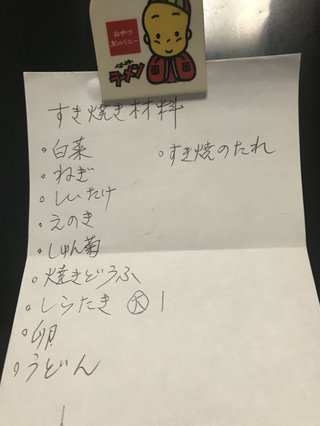 おやつ
カンパニー
ベビースター
ラーメン
すき焼き材料
◦白菜
◦すき焼のたれ
◦ねぎ
◦しいたけ
◦えのき
◦しゅん菊
◦焼きどうふ
◦しらたき 大 1
◦卵
◦うどん